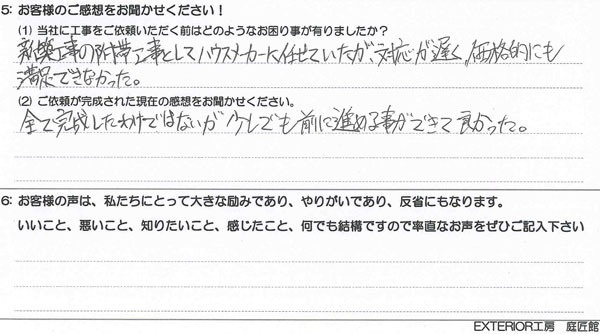 5: お客様のご感想をお聞かせください！
(1) 当社に工事をご依頼いただく前はどのようなお困り事が有りましたか？
新築工事の附帯工事としてハウスメーカーに任せていたが、対応が遅く、価格的にも
満足できなかった。
(2) ご依頼が完成された現在の感想をお聞かせください。
全て完成したわけではないが少しでも前に進める事ができて良かった。
6: お客様の声は、私たちにとって大きな励みであり、やりがいであり、反省にもなります。
いいこと、悪いこと、知りたいこと、感じたこと、何でも結構ですので率直なお声をぜひご記入下さい
EXTERIOR工房　庭匠館